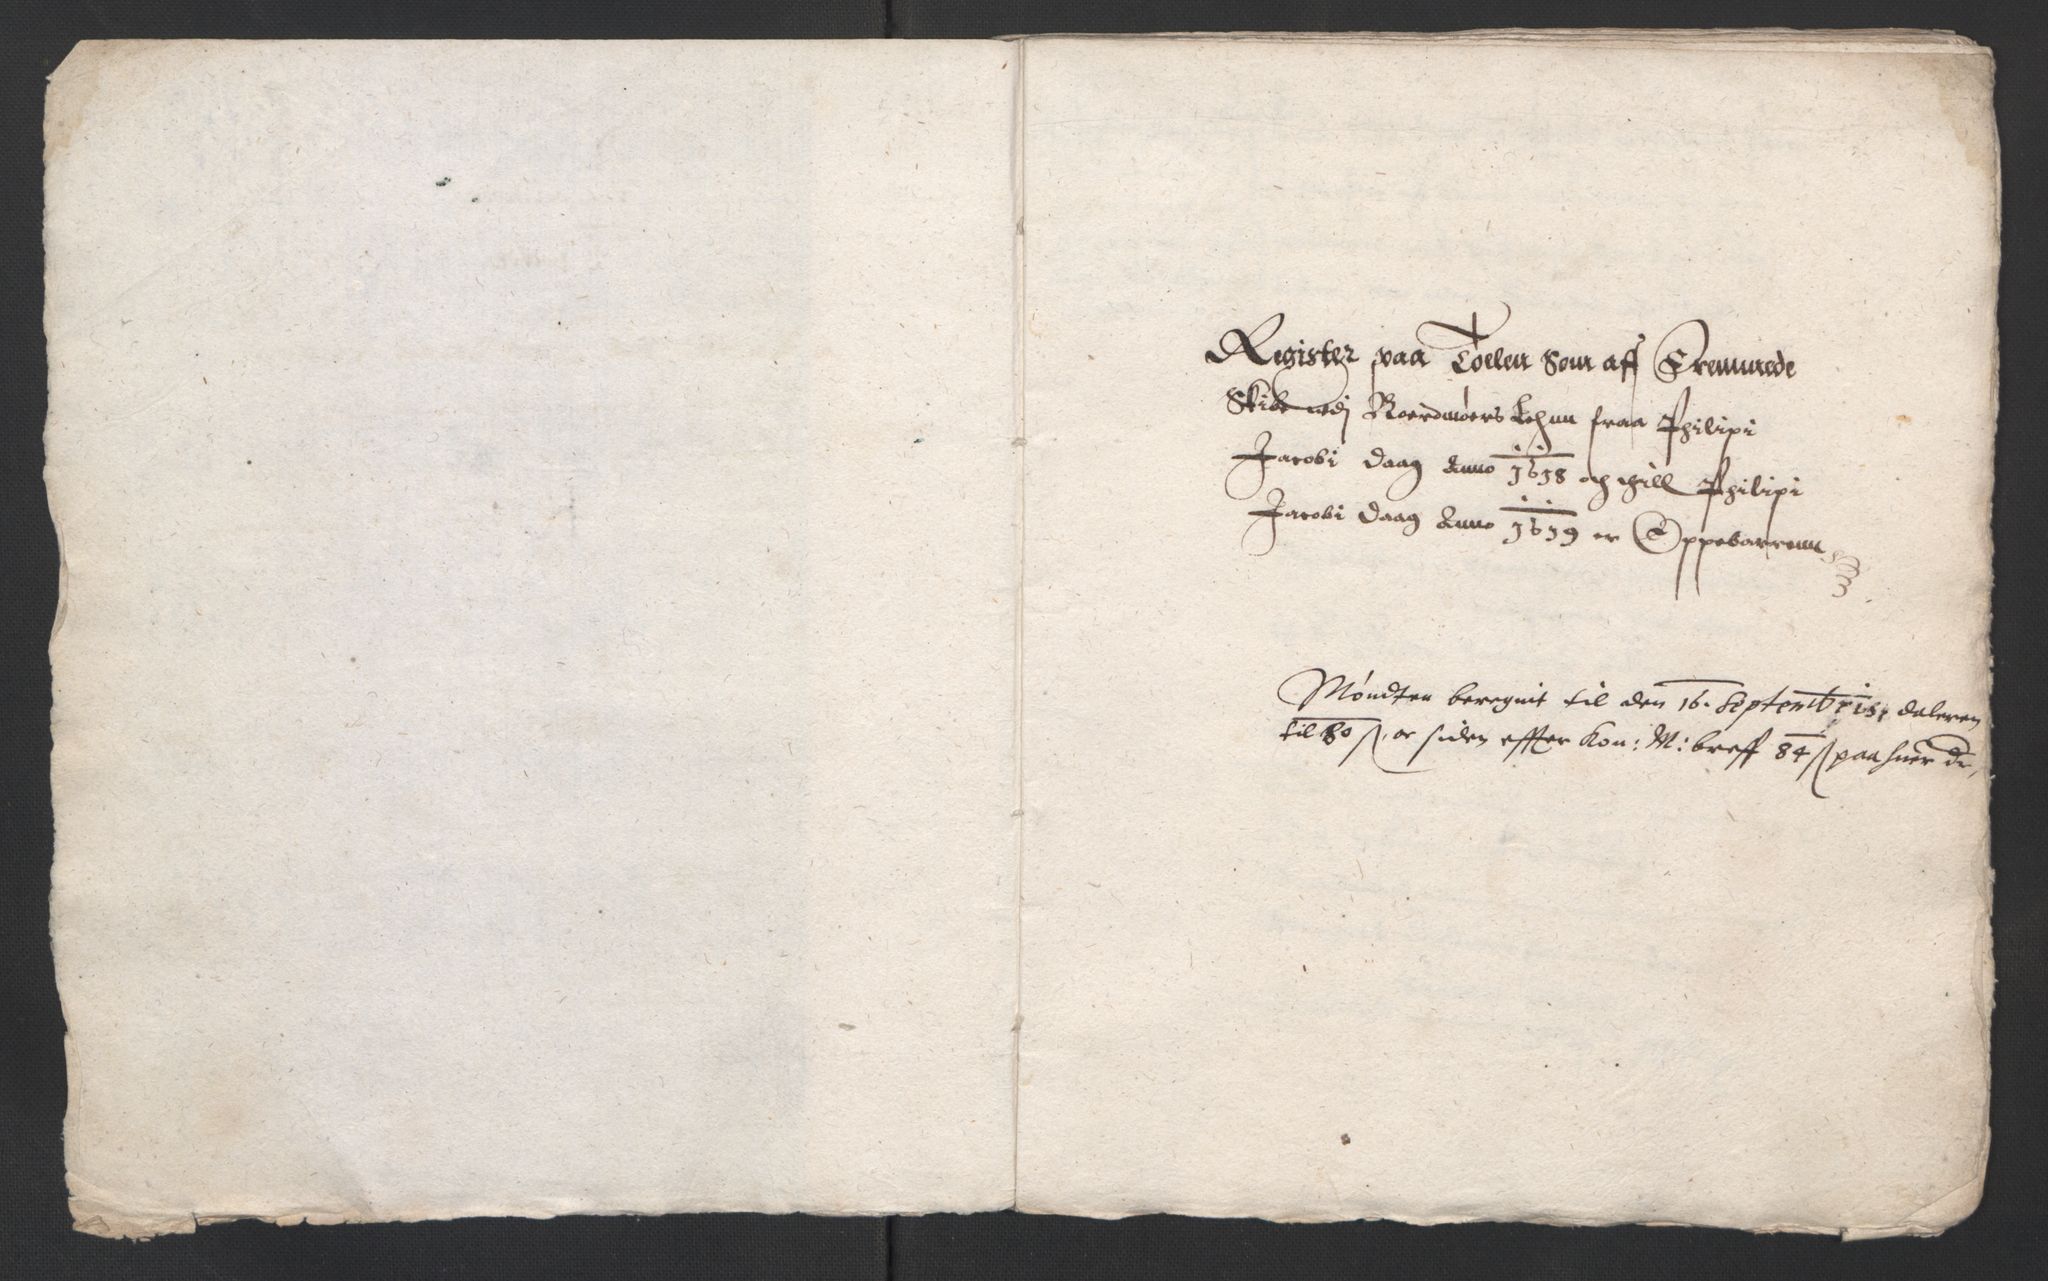 Register paa Tollen Som aff Fremmede
Skibe udj Noerdmøers Lehnn fraa Philipi
Jacobi daag Anno 1618 och thill Philipi
Jacobi daag Anno 1619 er Oppebarrenn
Møndten beregnit til den 16. Septembris, daleren
til 80 ß, oc siden effter Kon: M: breff 84 ß paa huer dr,